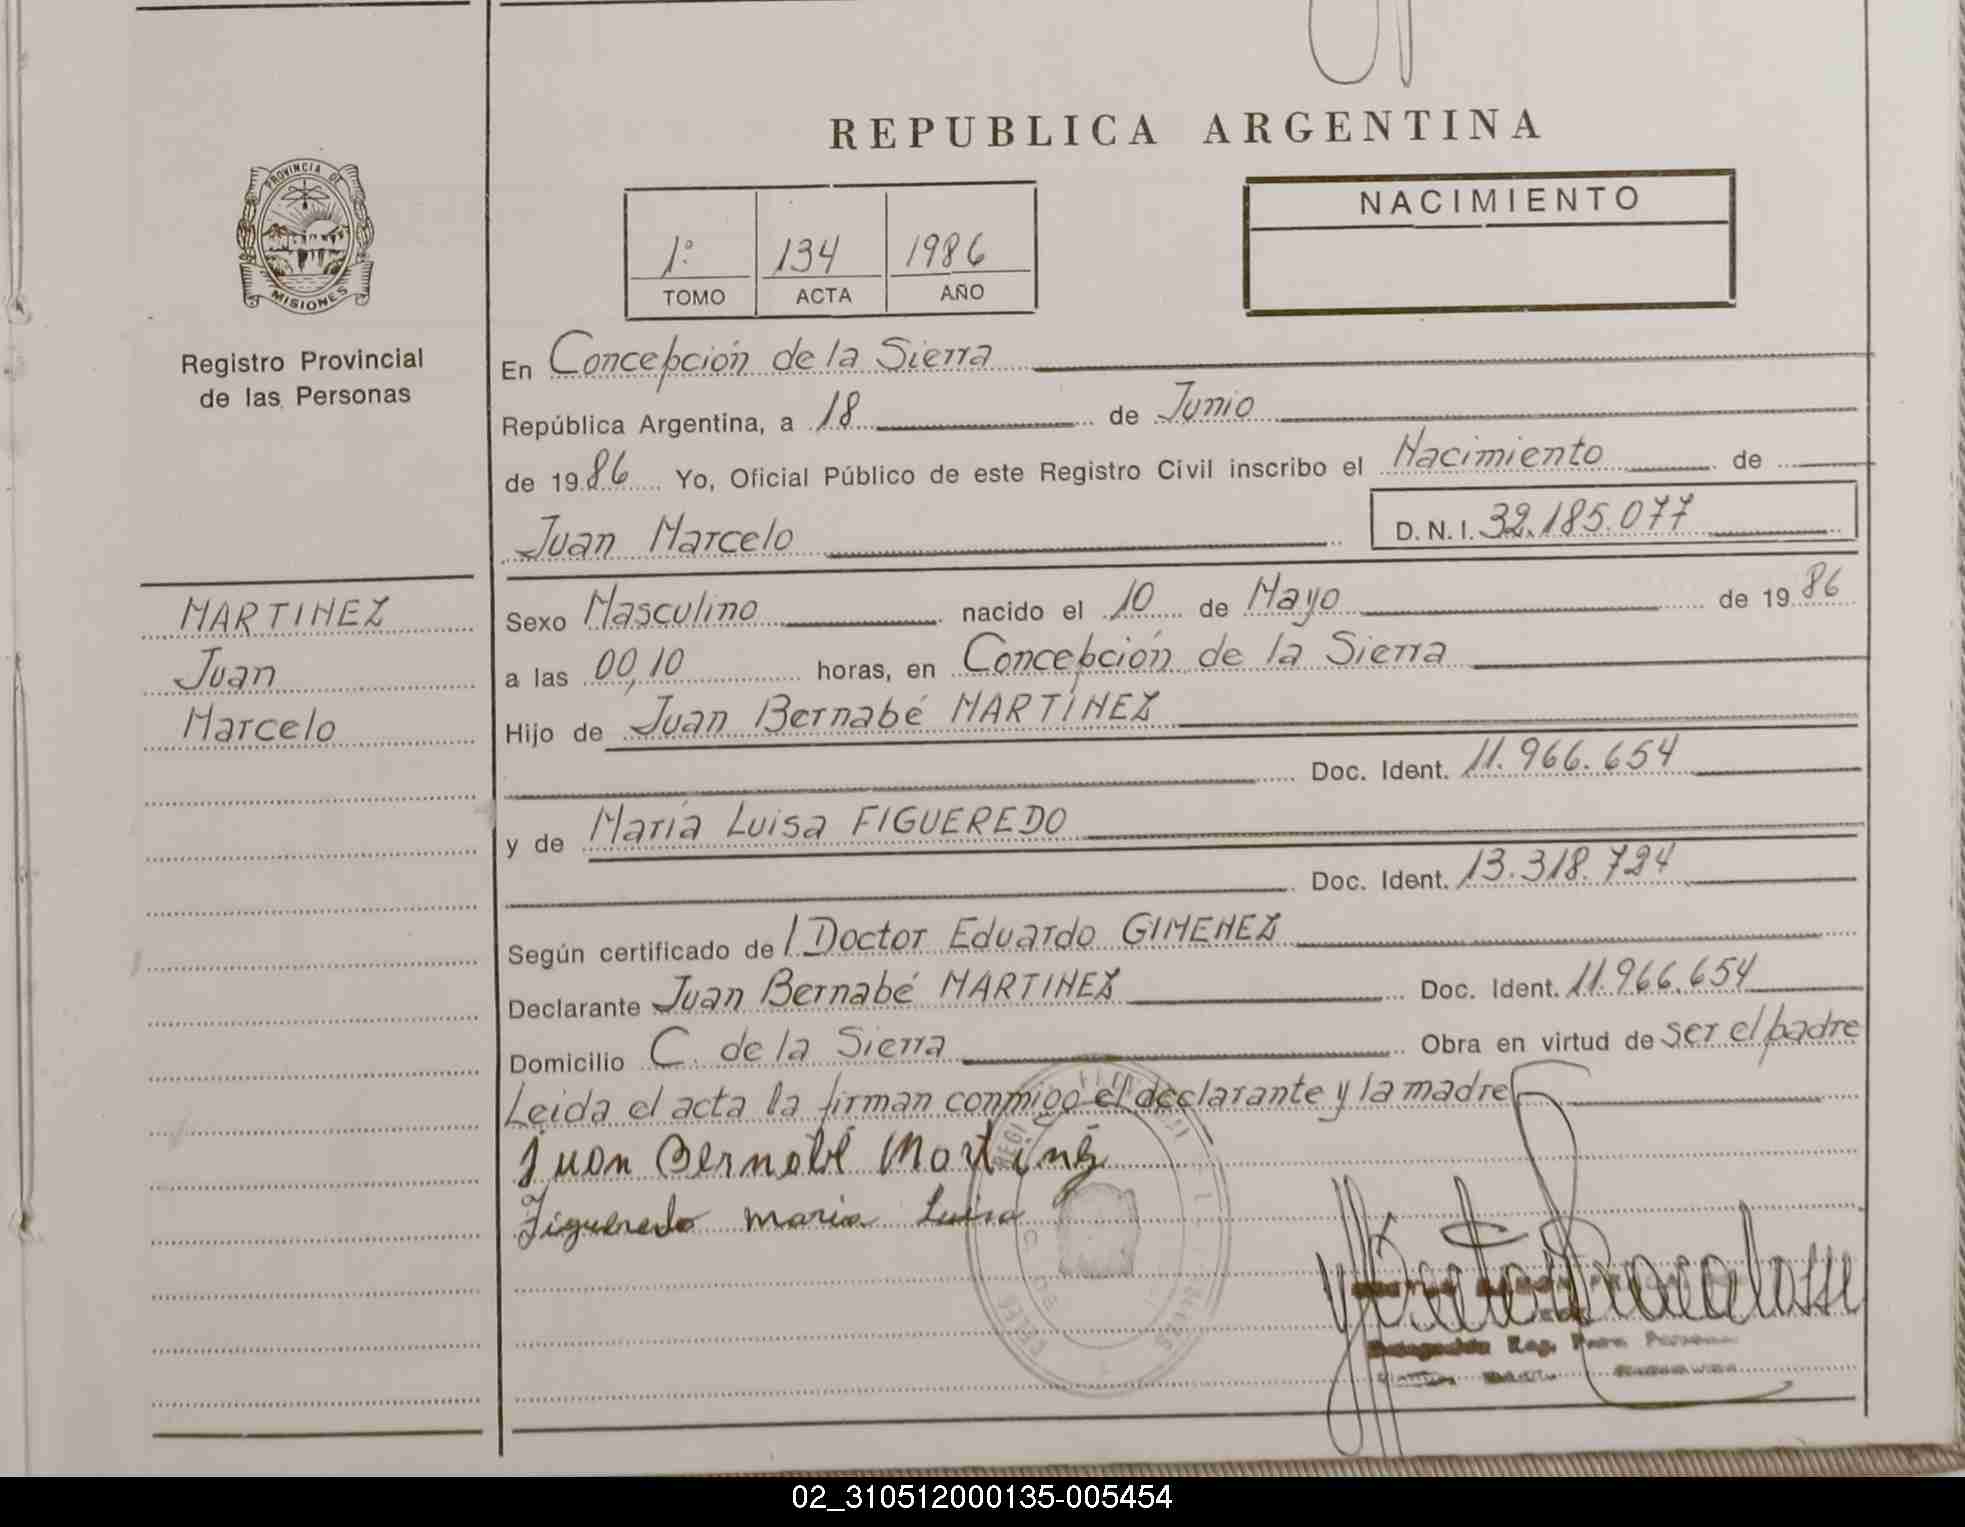 REPUBLICA ARGENTINA
PROVINCIA DE
MISIONES
Registro Provincial
de las Personas
1º 134 1986
TOMO ACTA AÑO
NACIMIENTO
En Concepción de la Sierra
República Argentina, a 18 de Junio
de 1986 Yo, Oficial Público de este Registro Civil inscribo el Nacimiento de
Juan Marcelo D. N. I. 32.185.077
MARTINEZ
Juan
Marcelo
Sexo Masculino nacido el 10 de Mayo de 1986
a las 00,10 horas, en Concepción de la Sierra
Hijo de Juan Bernabé MARTINEZ
Doc. Ident. 11.966.654
y de María Luisa FIGUEREDO
Doc. Ident. 13.318.724
Según certificado de l Doctor Eduardo GIMENEZ
Declarante Juan Bernabé MARTINEZ Doc. Ident. 11.966.654
Domicilio C. de la Sierra Obra en virtud de ser el padre
Leida el acta la firman conmigo el declarante y la madre
Juan Bernabé Martinez
Figueredo maria Luisa
Reg.
02_310512000135-005454